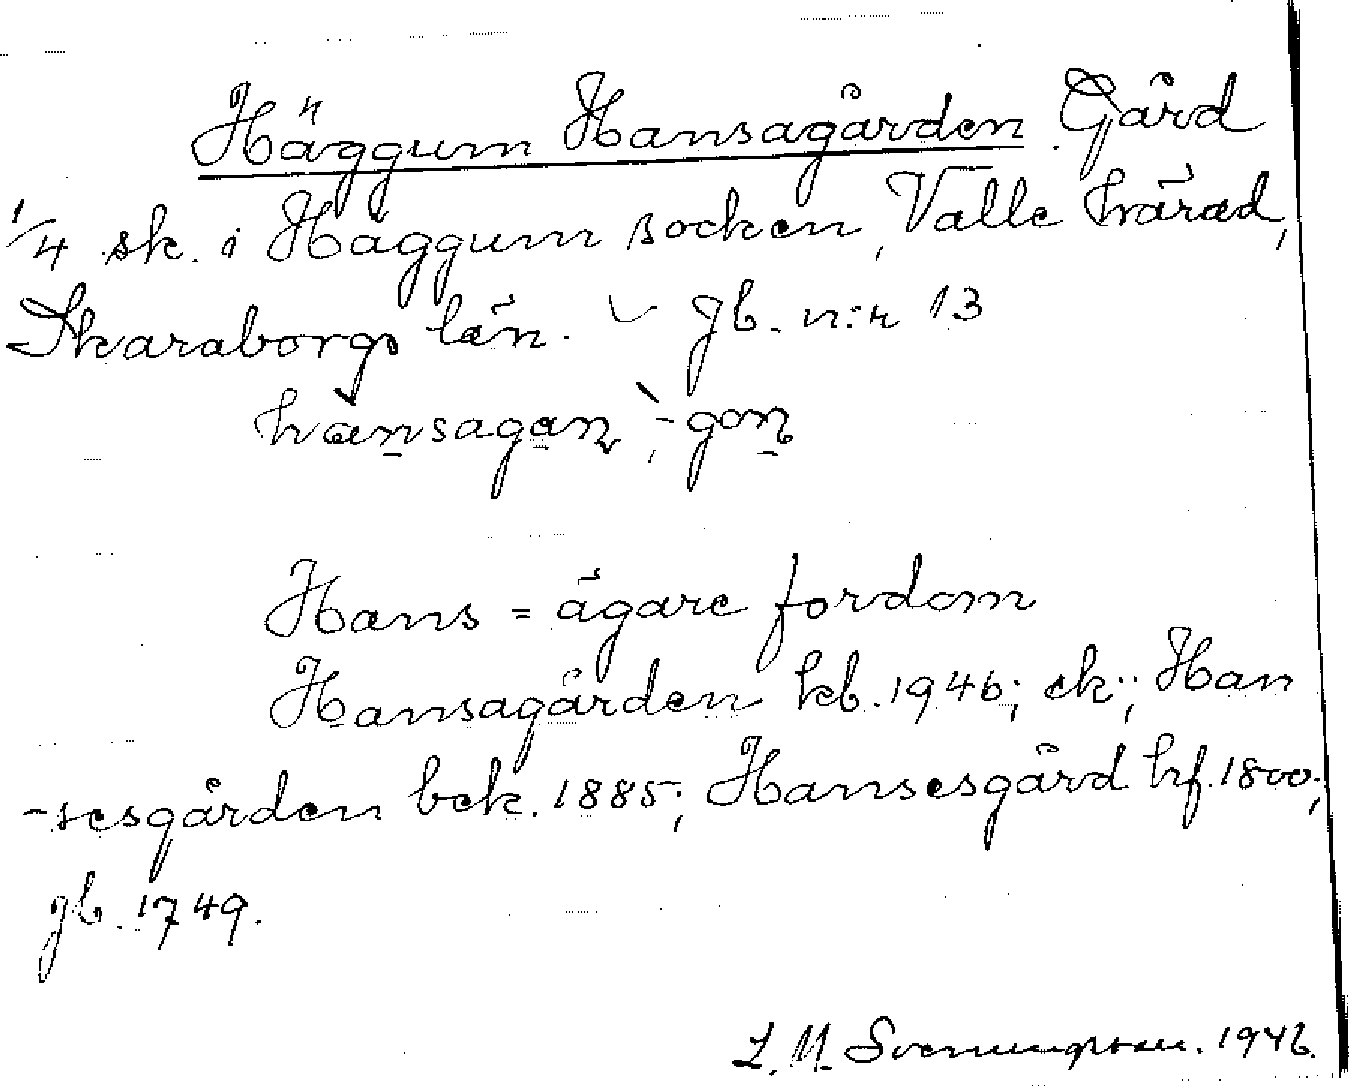 Häggum Hansagården. Gård
1/4 sk. i Häggum socken, Valle härad,
Skaraborgs län. gb. n:r 13
hansagan, -gon
Hans = ägare fordom
Hansagården kb. 1946; ek.; Han
-sesgården bek. 1885; Hansesgård hf. 1800;
gb. 1749.
L. M. Svenungsson. 1946.